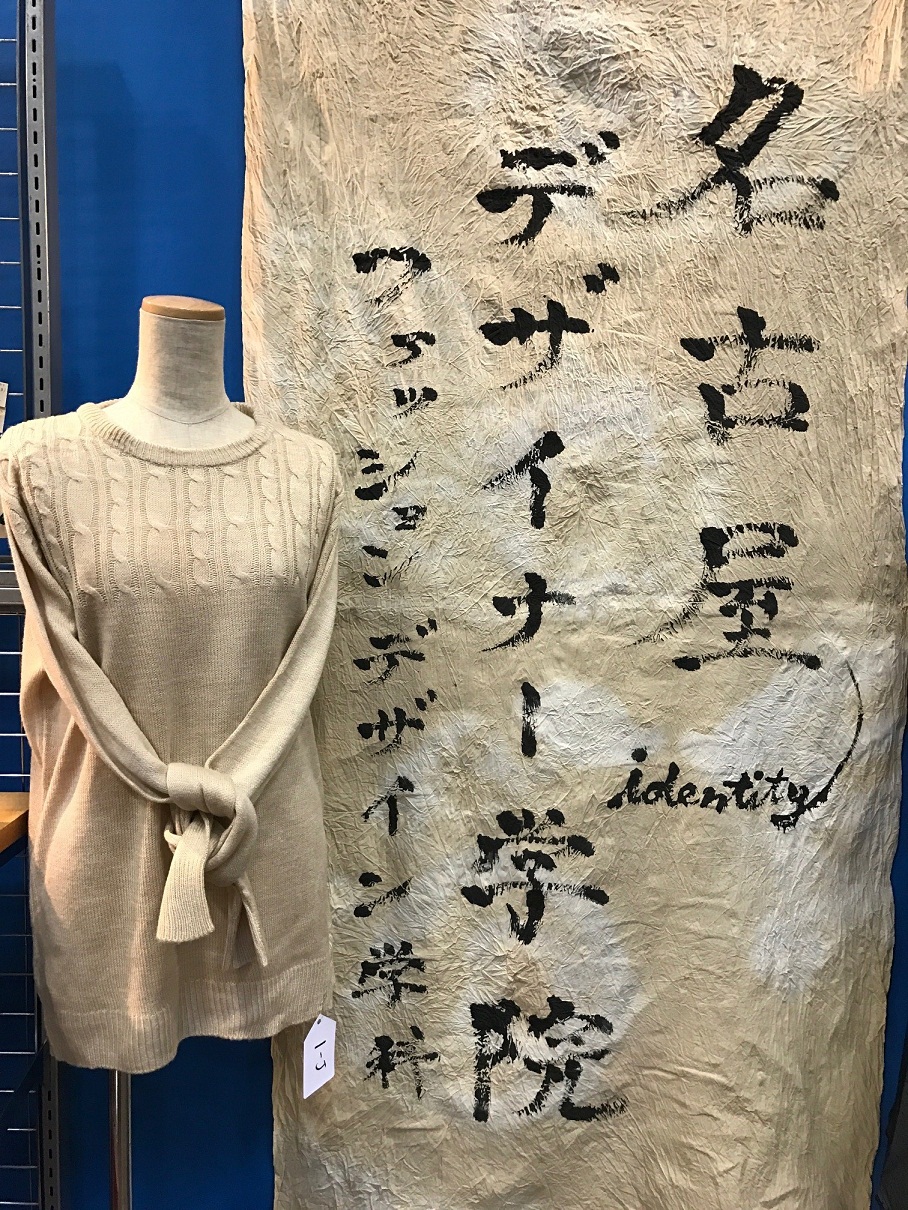 名古屋
デザイナー学院
ファッションデザイン学科
identity
1-J